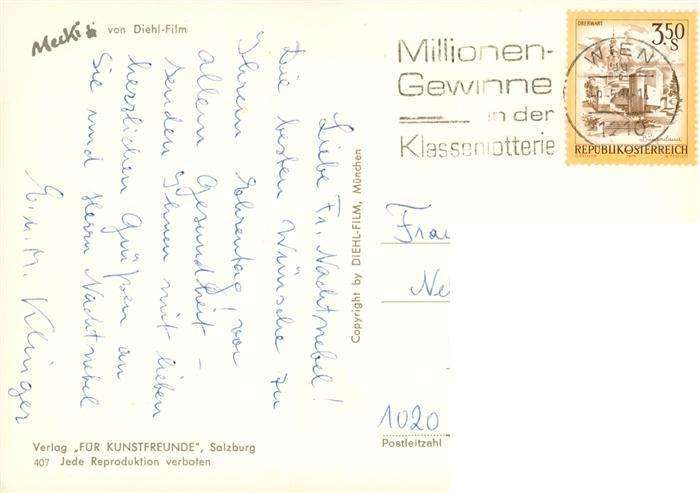 Mecki von Diehl-Film
Liebe Fr. Nachtnebel!
Die besten Wünsche zu
Ihrem Ehrentag! vor
allem Gesundheit -
senden Ihnen mit lieben
herzlichen Grüßen an
Sie und Herrn Nachtnebel
E. u. M. Klinger
Verlag „FÜR KUNSTFREUNDE", Salzburg
407 Jede Reproduktion verboten
Copyright by DIEHL-FILM, München
Millionen-
Gewinne
in der
Klassenlotterie
OBERWART
3.50
S
WIEN
1210
REPUBLIK ÖSTERREICH
Frau
Ne
1020
Postleitzahl